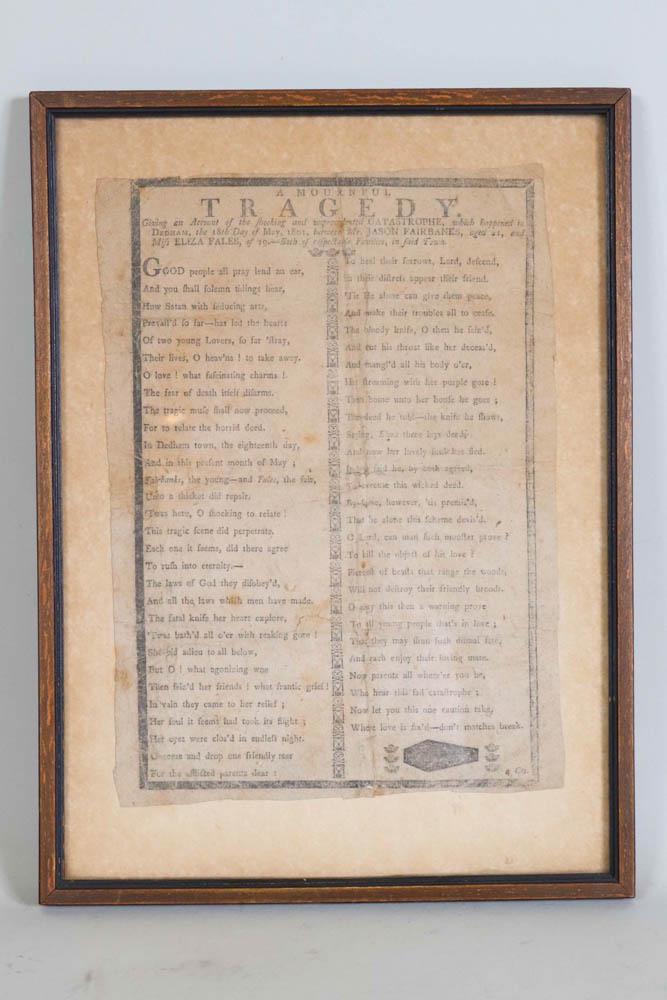 A MOURNFUL
TRAGEDY.
Giving an Account of the ſhocking and unprecedented CATASTROPHE, which happened in
DEDHAM, the 18th Day of May, 1801, between Mr. JASON FAIRBANKS, aged 21, and
Miſs ELIZA FALES, of 19.—Both of reſpectable Families, in ſaid Town.
GOOD people all pray lend an ear,
And you ſhall ſolemn tidings hear,
How Satan with ſeducing arts,
Prevail'd ſo far—has led the hearts
Of two young Lovers, ſo far 'ſtray,
Their lives, O heav'ns! to take away.
O love! what faſcinating charms!
The fear of death itſelf diſarms.
The tragic muſe ſhall now proceed,
For to relate the horrid deed.
In Dedham town, the eighteenth day,
And in this preſent month of May;
Fairbanks, the young—and Fales, the fair,
Unto a thicket did repair.
'Twas here, O ſhocking to relate!
This tragic ſcene did perpetrate.
Each one it ſeems, did there agree
To ruſh into eternity.—
The laws of God they diſobey'd,
And all the laws which men have made.
The fatal knife her heart explore,
'Twas bath'd all o'er with reaking gore!
She bid adieu to all below,
But O! what agonizing woe
Then ſeiz'd her friends! what frantic grief!
In vain they came to her relief;
Her ſoul it ſeems had took its flight;
Her eyes were clos'd in endleſs night.
O come and drop one friendly tear
For the afflicted parents dear:
To heal their ſorrows, Lord, deſcend,
In their diſtreſs appear their friend.
'Tis He alone can give them peace,
And make their troubles all to ceaſe.
The bloody knife, O then he ſeiz'd,
And cut his throat like her deceas'd,
And mangl'd all his body o'er,
His ſtreaming with her purple gore!
Then home unto her houſe he goes;
The deed he told—the knife he ſhows,
Saying, Eliza there lays dead;
And now her lovely ſoul has fled.
ſaid he, by both agreed,
To execute this wicked deed.
By ſome, however, 'tis premis'd,
That he alone this ſcheme devis'd.
O Lord, can man ſuch monſter prove?
To kill the object of his love?
Fierceſt of beaſts that range the woods,
Will not deſtroy their friendly broods.
O may this then a warning prove
To all young people that's in love;
That they may ſhun ſuch diſmal fate,
And each enjoy their loving mate.
Now parents all where'er you be,
Who hear this ſad cataſtrophe;
Now let you this one caution take,
Where love is fix'd—don't matches break.
Cts.